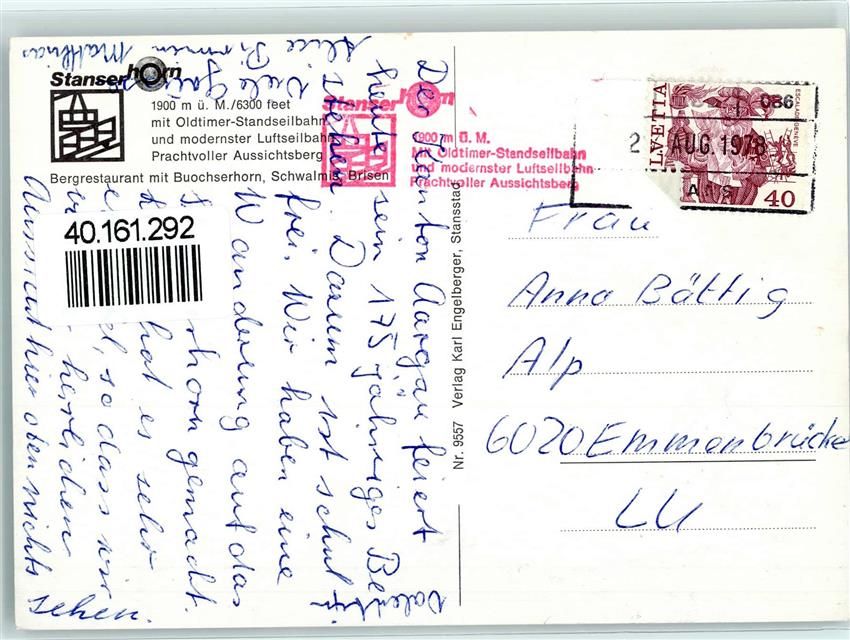 Stanserhorn
1900 m ü. M./6300 feet
mit Oldtimer-Standseilbahn
und modernster Luftseilbahn
Prachtvoller Aussichtsberg
Bergrestaurant mit Buochserhorn, Schwalmis, Brisen
Stanserhorn
1900 m ü. M.
Mit Oldtimer-Standseilbahn
und modernster Luftseilbahn
Prachtvoller Aussichtsberg
40.161.292
Der Kanton Aargau feiert
heute sein 175 jähriges Be-
stehen. Darum ist schul-
frei. Wir haben eine
Wanderung auf das
rhorn gemacht.
hat es sehr
el, so dass wir
herrlichen
Aussicht hier oben nichts
sehen.
Viele
Alice
Mathias
Nr. 9557 Verlag Karl Engelberger, Stansstad
HELVETIA
ESCALADE GENEVE
40
086
2 AUG. 1978
Frau
Anna Bättig
Alp
6020 Emmenbrücke
LU